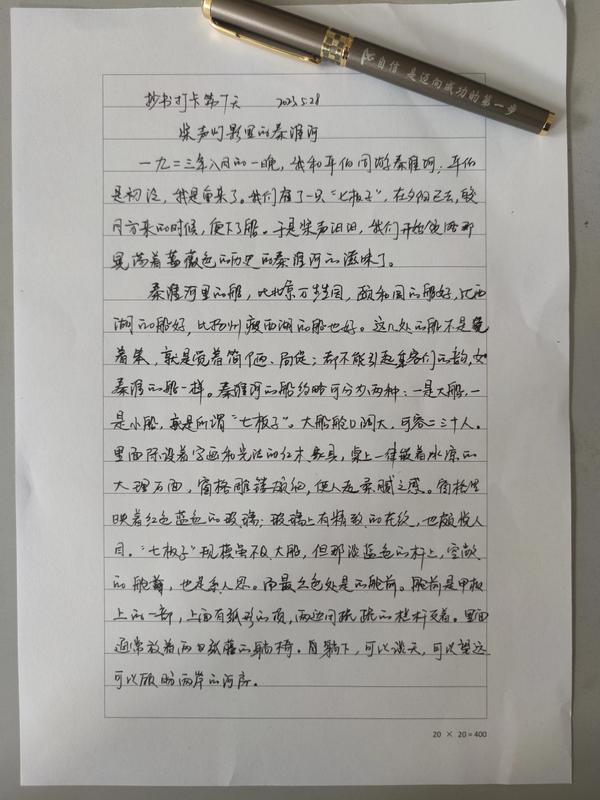 自信 是迈向成功的第一步
抄书打卡第7天 2023.5.28
桨声灯影里的秦淮河
一九二三年八月的一晚，我和平伯同游秦淮河；平伯
是初泛，我是重来了。我们雇了一只“七板子”，在夕阳已去，皎
月方来的时候，便下了船。于是桨声汩汩，我们开始领略那
晃荡着蔷薇色的历史的秦淮河的滋味了。
秦淮河里的船，比北京万生园，颐和园的船好，比西
湖的船好，比扬州瘦西湖的船也好。这几处的船不是觉
着笨，就是觉着简陋、局促；都不能引起乘客们的韵，如
秦淮的船一样。秦淮河的船约略可分为两种：一是大船，一
是小船，就是所谓“七板子”。大船舱口阔大，可容二三十人。
里面陈设着字画和光洁的红木家具，桌上一律嵌着冰凉的
大理石面，窗格雕镂颇细，使人起柔腻之感。窗格里
映着红色蓝色的玻璃；玻璃上有精致的花纹，也颇悦人
目。“七板子”规模虽不及大船，但那淡蓝色的杆上，空敞
的舱，也是系人思。而最出色处是的舱前。舱前是甲板
上的一部，上面有弧形的顶，两边用疏疏的栏杆支着。里面
通常放着两日藤的躺椅。自躺下，可以谈天，可以望远
可以顾盼两岸的河房。
20 × 20 = 400